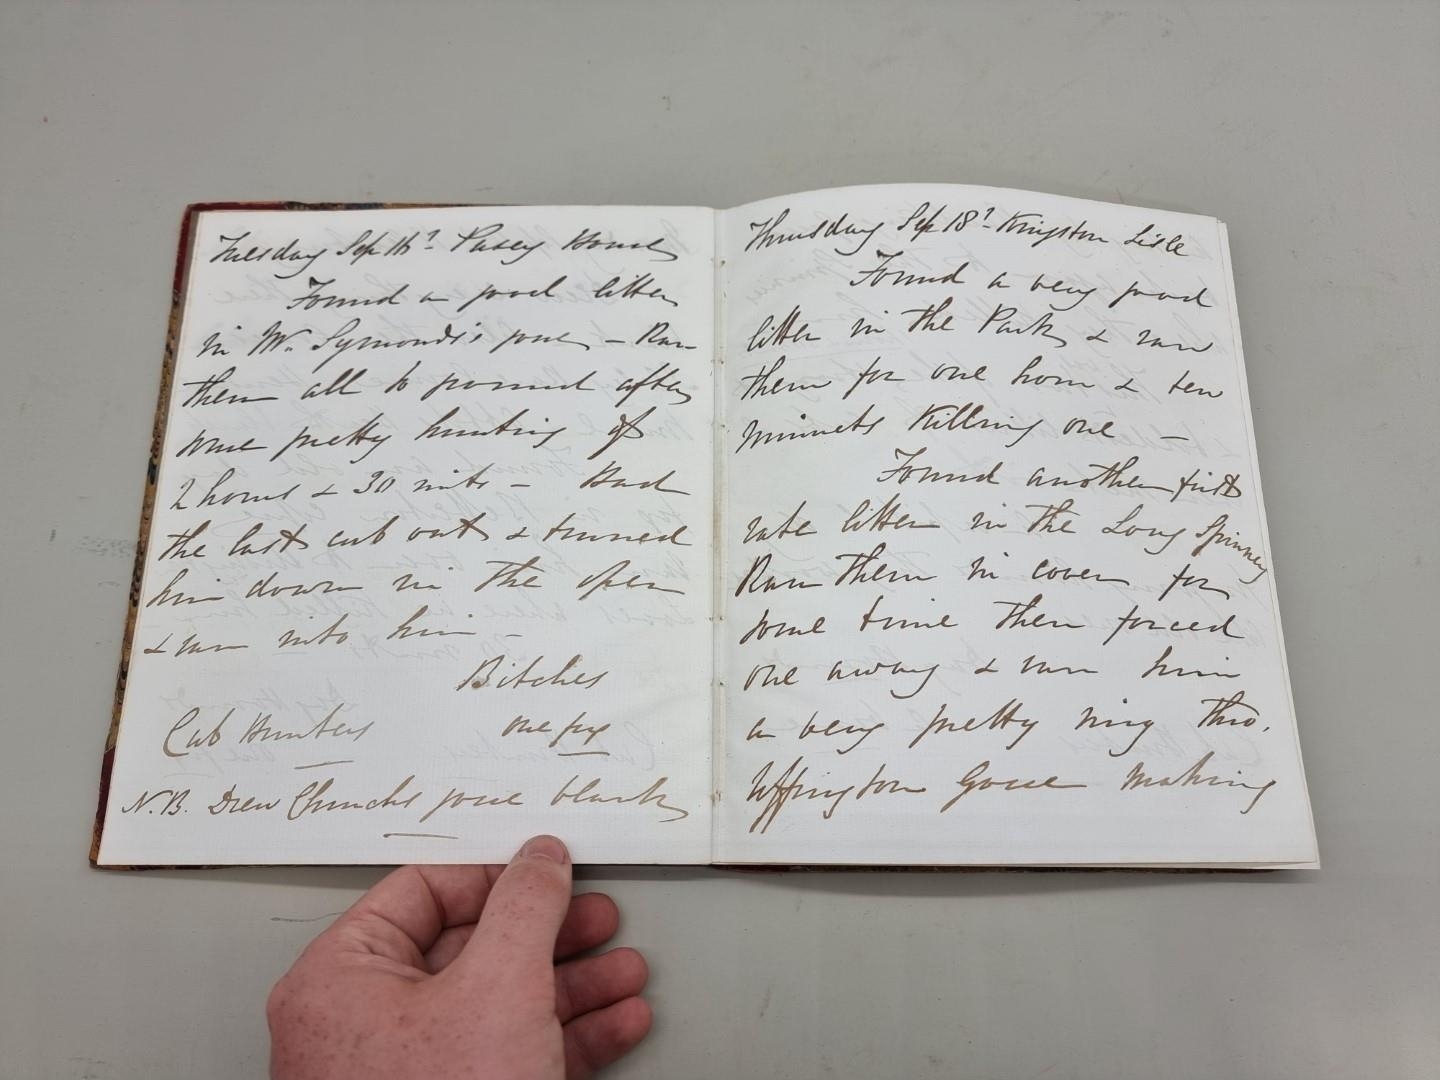 Tuesday Sep 16th Pusey House
Found a good litter
in Mr. Symonds's gorse – Ran
them all to ground after
some pretty hunting of
2 hours & 30 mts – Had
the last cub out & turned
him down in the open
& ran into him –
Bitches
Cub Hunters one fox
N.B. Drew Church's gorse blank
Thursday Sep 18th Kingston Lisle
Found a very good
litter in the Park & ran
them for one hour & ten
minuets killing one –
Found another first
rate litter in the Long Spinney
Ran them in cover for
some time then forced
one away & ran him
a very pretty ring thro.
Uffington Gorse making